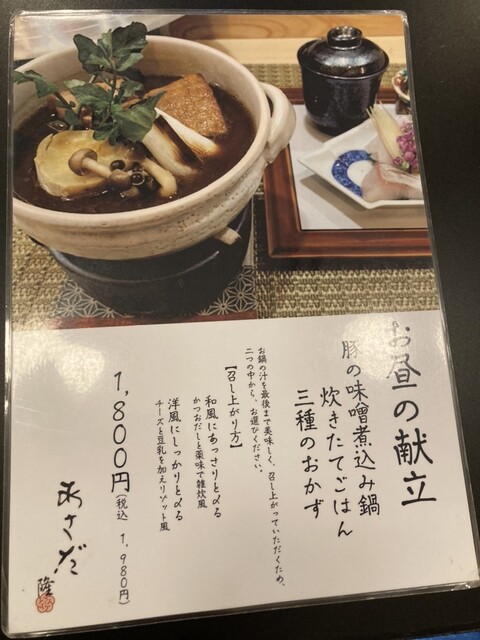 お昼の献立
豚の味噌煮込み鍋
炊きたてごはん
三種のおかず
お鍋の汁を最後まで美味しく、召し上がっていただくため、
二つの中から、お選びください。
【召し上がり方】
和風にあっさりと〆る
かつおだしと薬味で雑炊風
洋風にしっかりと〆る
チーズと豆乳を加えリゾット風
1,800円(税込 1,980円)
あさだ
隆